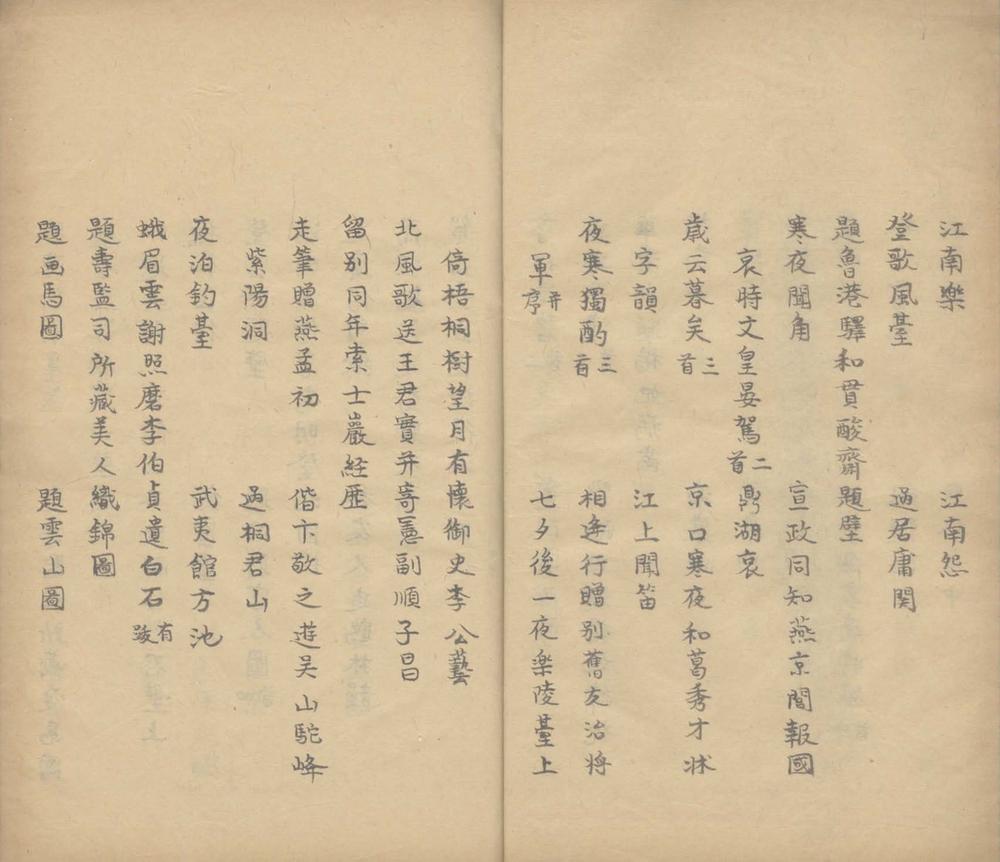 江南樂 江南怨
登歌風臺 過居庸関
題魯港驛和貫酸齋題壁
寒夜聞角 宣政同知燕京間報國
哀時文皇晏駕二首 鼎湖哀
歳云暮矣三首 京口寒夜和葛秀才牀
字韻 江上聞笛
夜寒獨酌三首 相逢行贈别舊友治將
軍并序 七夕後一夜樂陵臺上
倚梧桐樹望月有懷御史李公藝
北風歌送王君實并寄憲副順子昌
留别同年索士巖経歴
走筆贈燕孟初 偕卞敬之遊吴山駝峰
紫陽洞 過桐君山
夜泊釣臺 武夷館方池
蛾眉雲謝照磨李伯貞遺白石有跋
題壽監司所藏美人織錦圖
題画馬圖 題雲山圖